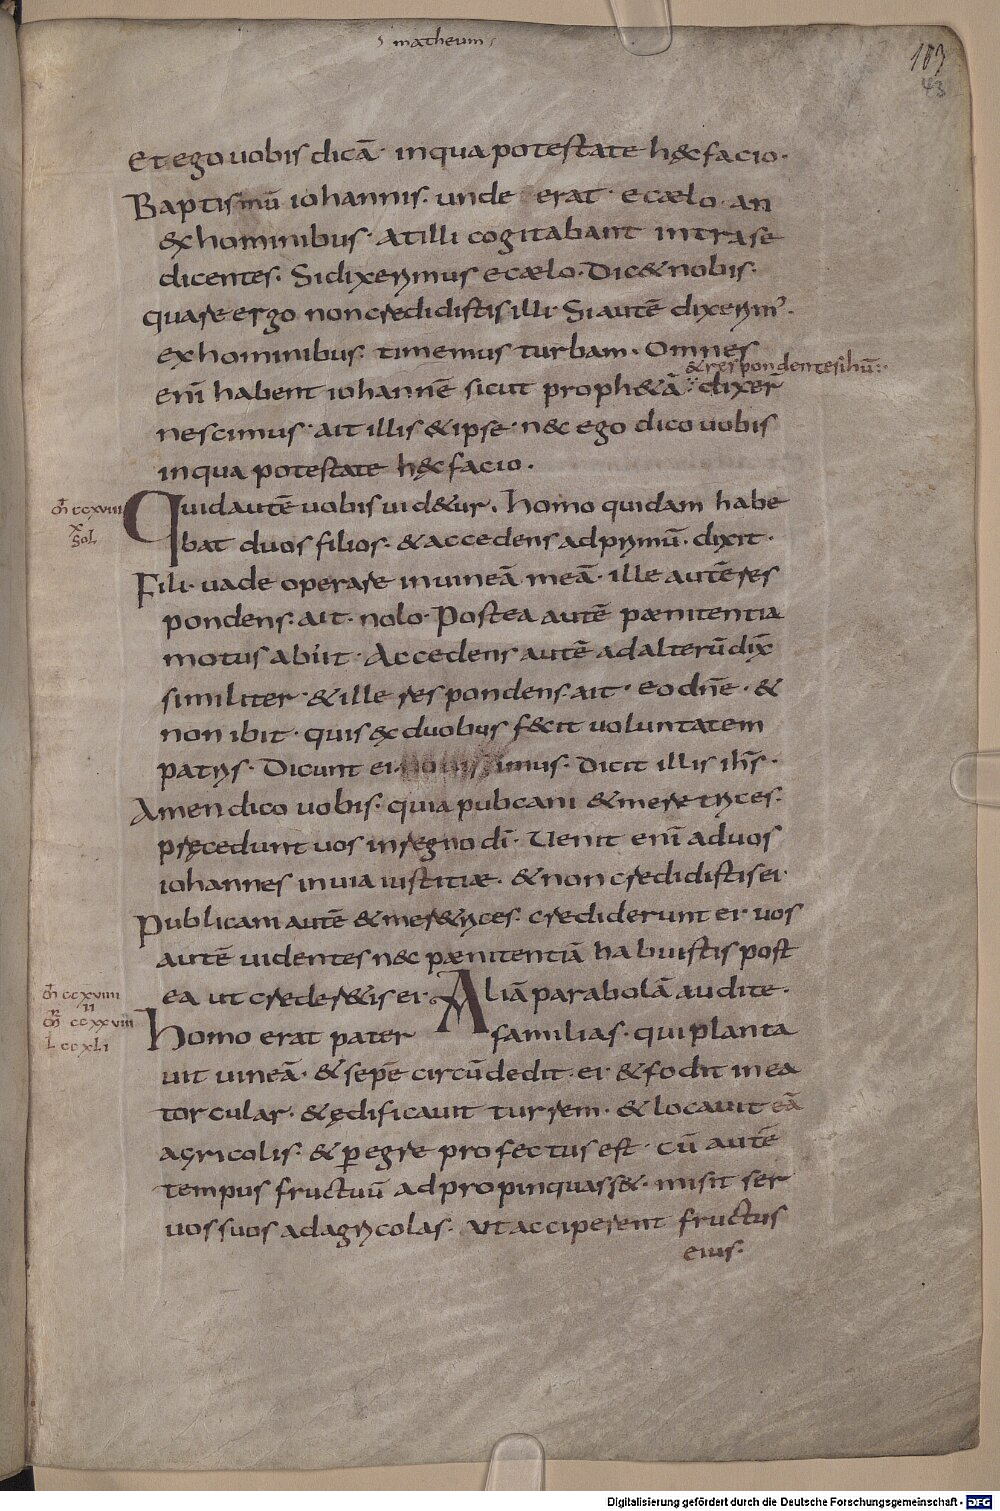 matheum
103
43
Et ego uobis dicā· in qua potestate hęc facio·
Baptismū iohannis· unde erat· e cælo· an
ex hominibus· at illi cogitabant intra se
dicentes· Si dixerimus e cælo· Dic& nobis·
quare ergo non credidistis illi· Si autē dixerim᾽·
ex hominibus· timemus turbam· Omnes
& respondentes ihū:·
enī habent iohannē sicut proph&ā· dixer̄
nescimus· ait illis & ipse· nec ego dico uobis
in qua potestate hęc facio·
m̄ ccxviii
x
sol
Quid autē uobis uid&ur· homo quidam habe
bat duos filios· & accedens ad primū· dixit·
Fili· uade operare in uineā meā· ille autē res
pondens· ait· nolo· Postea autē pænitentia
motus abiit· Accedens autē ad alterū dix̄
similiter· & ille respondens ait· eo dn̄e· &
non ibit· quis ex duobus fecit uoluntatem
patris· Dicunt ei· nouissimus· Dicit illis ih̄s·
Amen dico uobis· quia pubcani & meretrices·
pręcedunt uos in regno dī· Uenit enī ad uos
iohannes in uia iustitiæ· & non credidistis ei·
Publicani autē & mer&rices· crediderunt ei· uos
autē uidentes nec pænitentiā habuistis post
m̄ ccxviiii
ea ut creder&is ei· Aliā parabolā audite·
m̄r ccxxviii
Homo erat pater familias· qui planta
l ccxli
uit uineā· & sepē circūdedit ei· & fodit in ea
torcular· & ędificauit turrem· & locauit eā
agricolis· & p̱egre profectus est· cū autē
tempus fructuū adpropinquass&· misit ser
uos suos ad agricolas· ut acciperent fructus
eius·
Digitalisierung gefördert durch die Deutsche Forschungsgemeinschaft - DFG